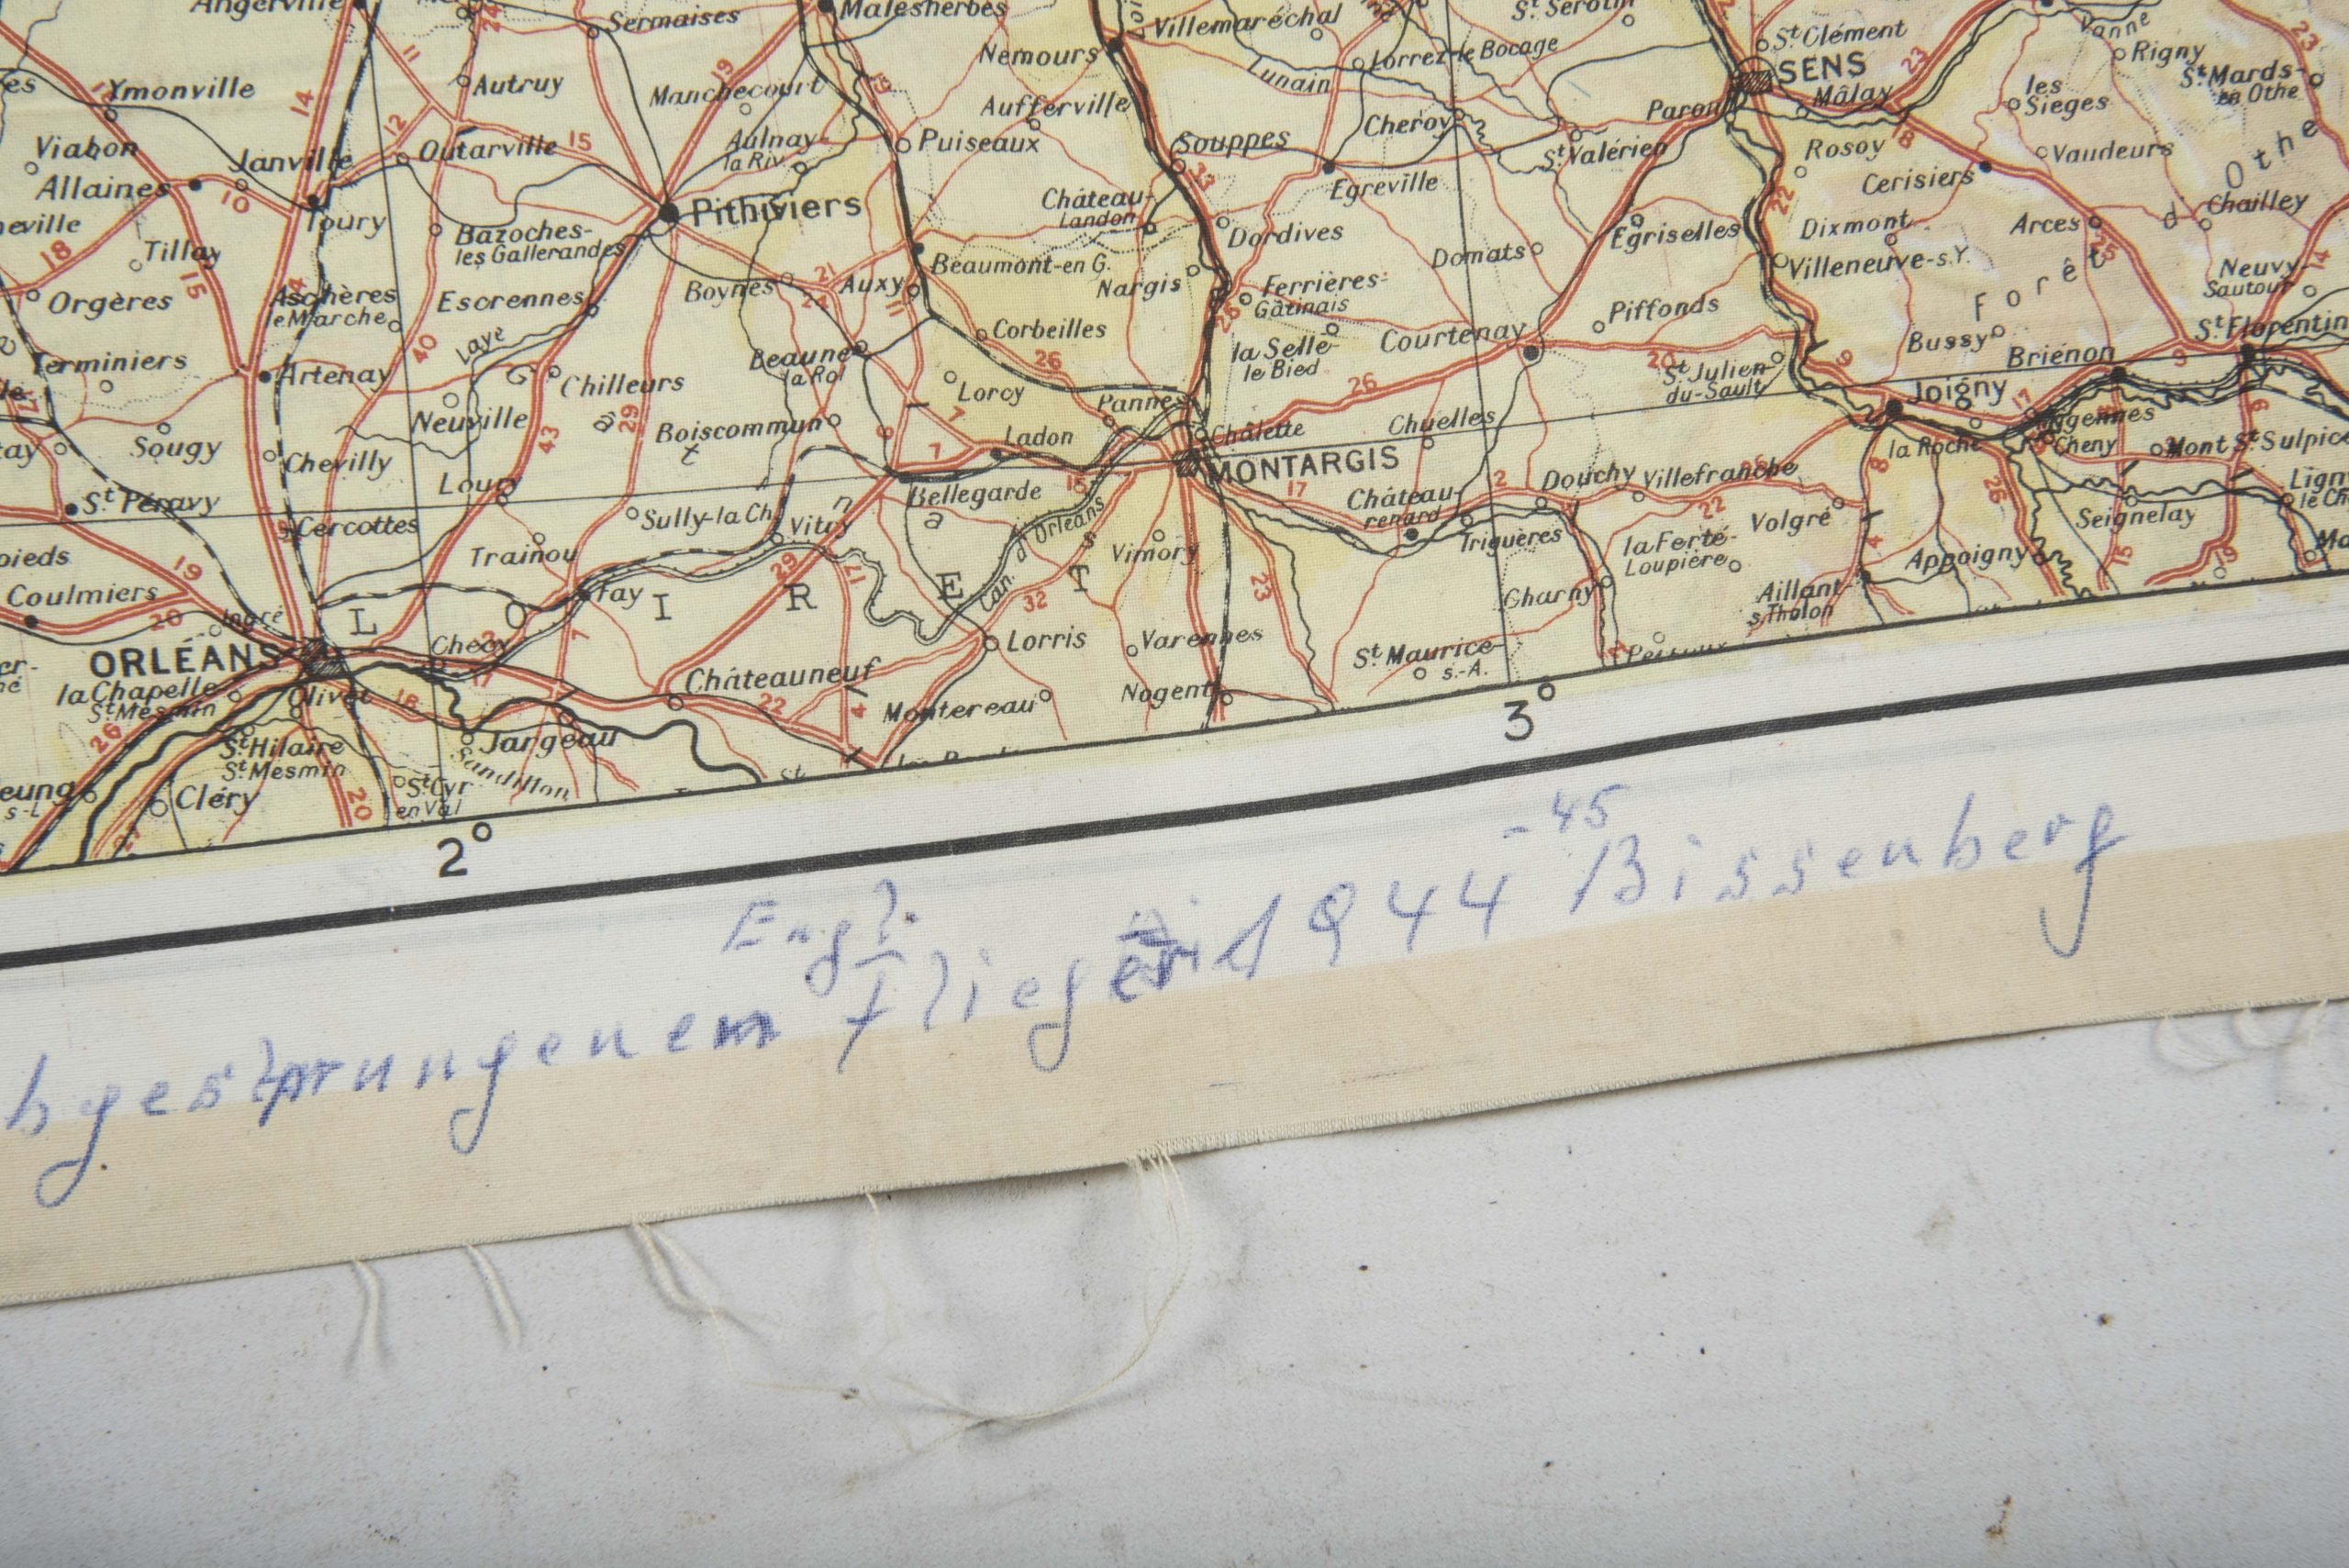 Angerville
Sermaises
Malesherbes
Villemaréchal
St. Clément
Vanne
Rigny
23
Nemours
Lorrez-le Bocage
SENS
23
St. Mards-
en Othe
Ymonville
14
11
Autruy
19
Manchecourt
Aufferville
Lunain
Cheroy
Paron
Mâlay
les
Sieges
Viabon
Janville
12
Outarville
15
Aulnay-
la Riv.
Puiseaux
Souppes
St. Valérien
Rosoy
18
Vaudeurs
Othe
Allaines
10
Toury
Pithiviers
Château-
Landon
33
Egreville
Cerisiers
Chailley
18
Tillay
15
Bazoches-
les Gallerandes
Dordives
Domats
Egriselles
22
Dixmont
Arces
25
d
Orgères
Aschères
le Marche
Escrennes
Boynes
21
24
Auxy
11
Beaumont-en G.
Nargis
Ferrières-
Gâtinais
Piffonds
Villeneuve-s.Y.
Forêt
Neuvy-
Sautour
14
Terminiers
Artenay
40
Laye
Chilleurs
Beaune
la Rol
Corbeilles
26
la Selle-
le Bied
Courtenay
20
St. Julien-
du-Sault
9
Bussy
Briénon
9
St. Florentin
Sougy
Chevilly
Neuville
43
29
Boiscommun
Lorcy
7
Pannes
26
Chuelles
Joigny
17
Loury
6
7
Ladon
Châlette
MONTARGIS
la Roche
Cheny
Mont St. Sulpice
St. Péravy
Cercottes
Sully-la Ch.
Vitry
Bellegarde
15
17
Château-
renard
2
Douchy
Villefranche
8
26
Seignelay
19
Trainou
29
17
Can. d'Orleans
Vimory
23
Triguères
la Ferté-
Loupière
22
Volgré
4
Appoigny
15
19
Coulmiers
20
Ingré
Fay
LOIRET
32
Charny
Aillant
s. Tholon
ORLÉANS
Checy
7
Lorris
Varennes
la Chapelle
St. Mesmin
Olivet
18
17
Châteauneuf
22
4
Montereau
Nogent
St. Maurice-
s.-A.
26
St. Hilaire
St. Mesmin
Jargeau
Sandillon
Cléry
20
St. Cyr
en Val
2°
3°
Engl. -45
bgesprungenem Flieger 1944 Bissenberg